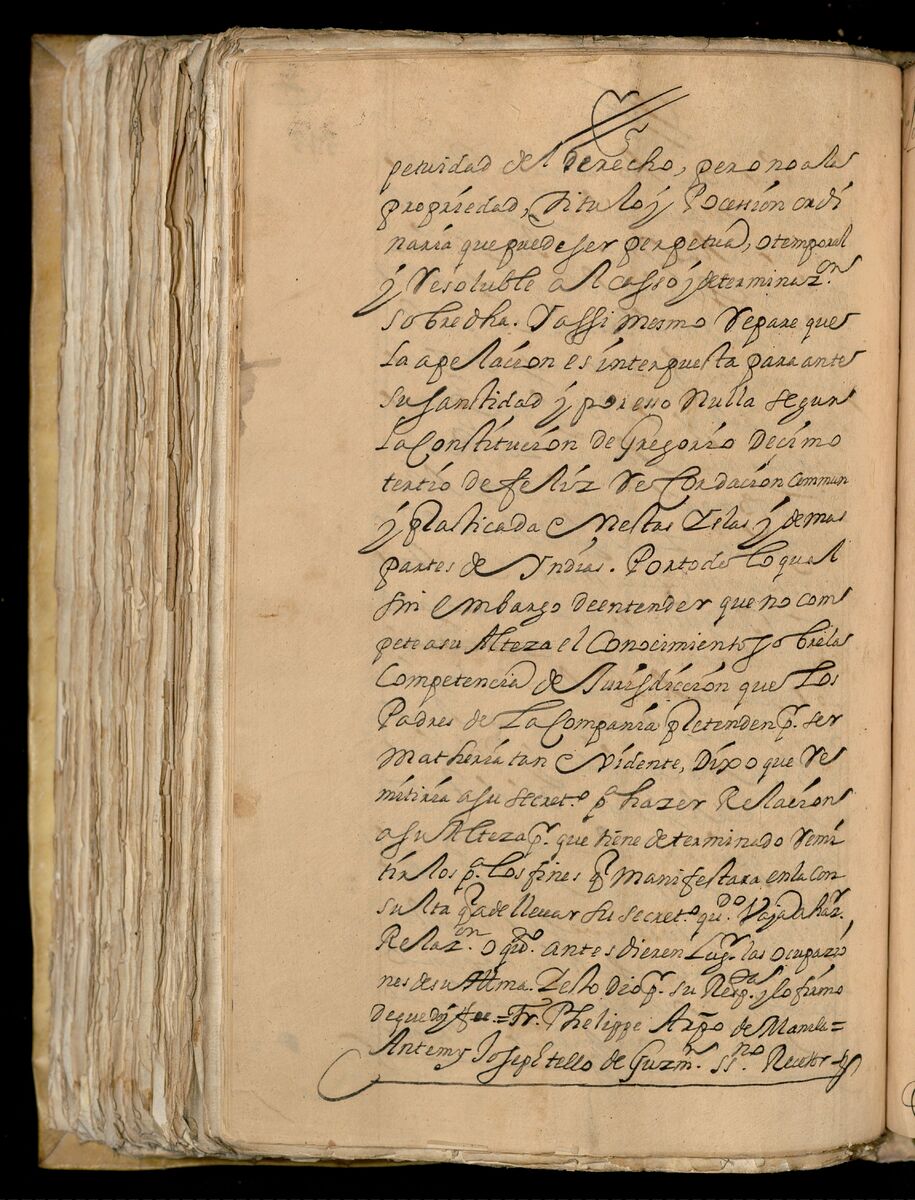 petuidad del derecho, pero no a la
propriedad, Titulo y Pocession ordi
naria que puede ser perpetua, o temporal
y resoluble al casso y determinaz.on
sobredha. Y assi mesmo repare que
la apelacion es interpuesta para ante
su santidad y por esso nulla segun
la Constitucion de Gregorio Decimo
tertio de feliz recordacion Commun
y platicada en estas Yslas y demas
partes de Yndias. Por todo lo qual
sin embargo de entender que no com
pete a su Alteza el Conocimiento sobre la
Competencia de Jurisdiccion que Los
Padres de La Compania pretenden p.r ser
Matheria tan evidente, Dixo que re
mitiria a su secret.o p.a hazer Relacion
a su Alteza p.r que tiene determinado remi
tirlos p.a los fines q.e Manifestara en la con
sulta q.e a de llevar su secret.o qu.do Vaja a haz.r
Relaz.on o qu.do antes dieren lug.r las ocupazio
nes de su Alt.ma. Y esto dio p.r su Resp.ta y lo firmo
de que doy fee.= Fr. Phelippe Arpo de Manila=
Antemy Joseph tello de Guzm.n ss.no Recetor